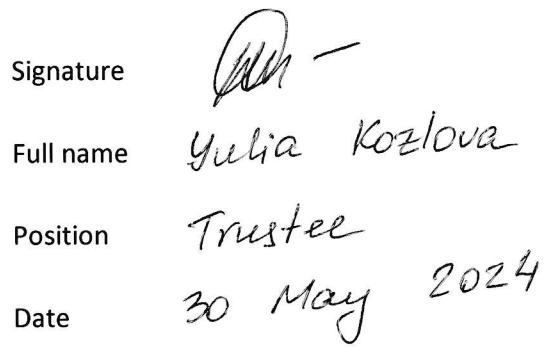 Signature
Full name Yulia Kozlova
Position Trustee
Date 30 May 2024